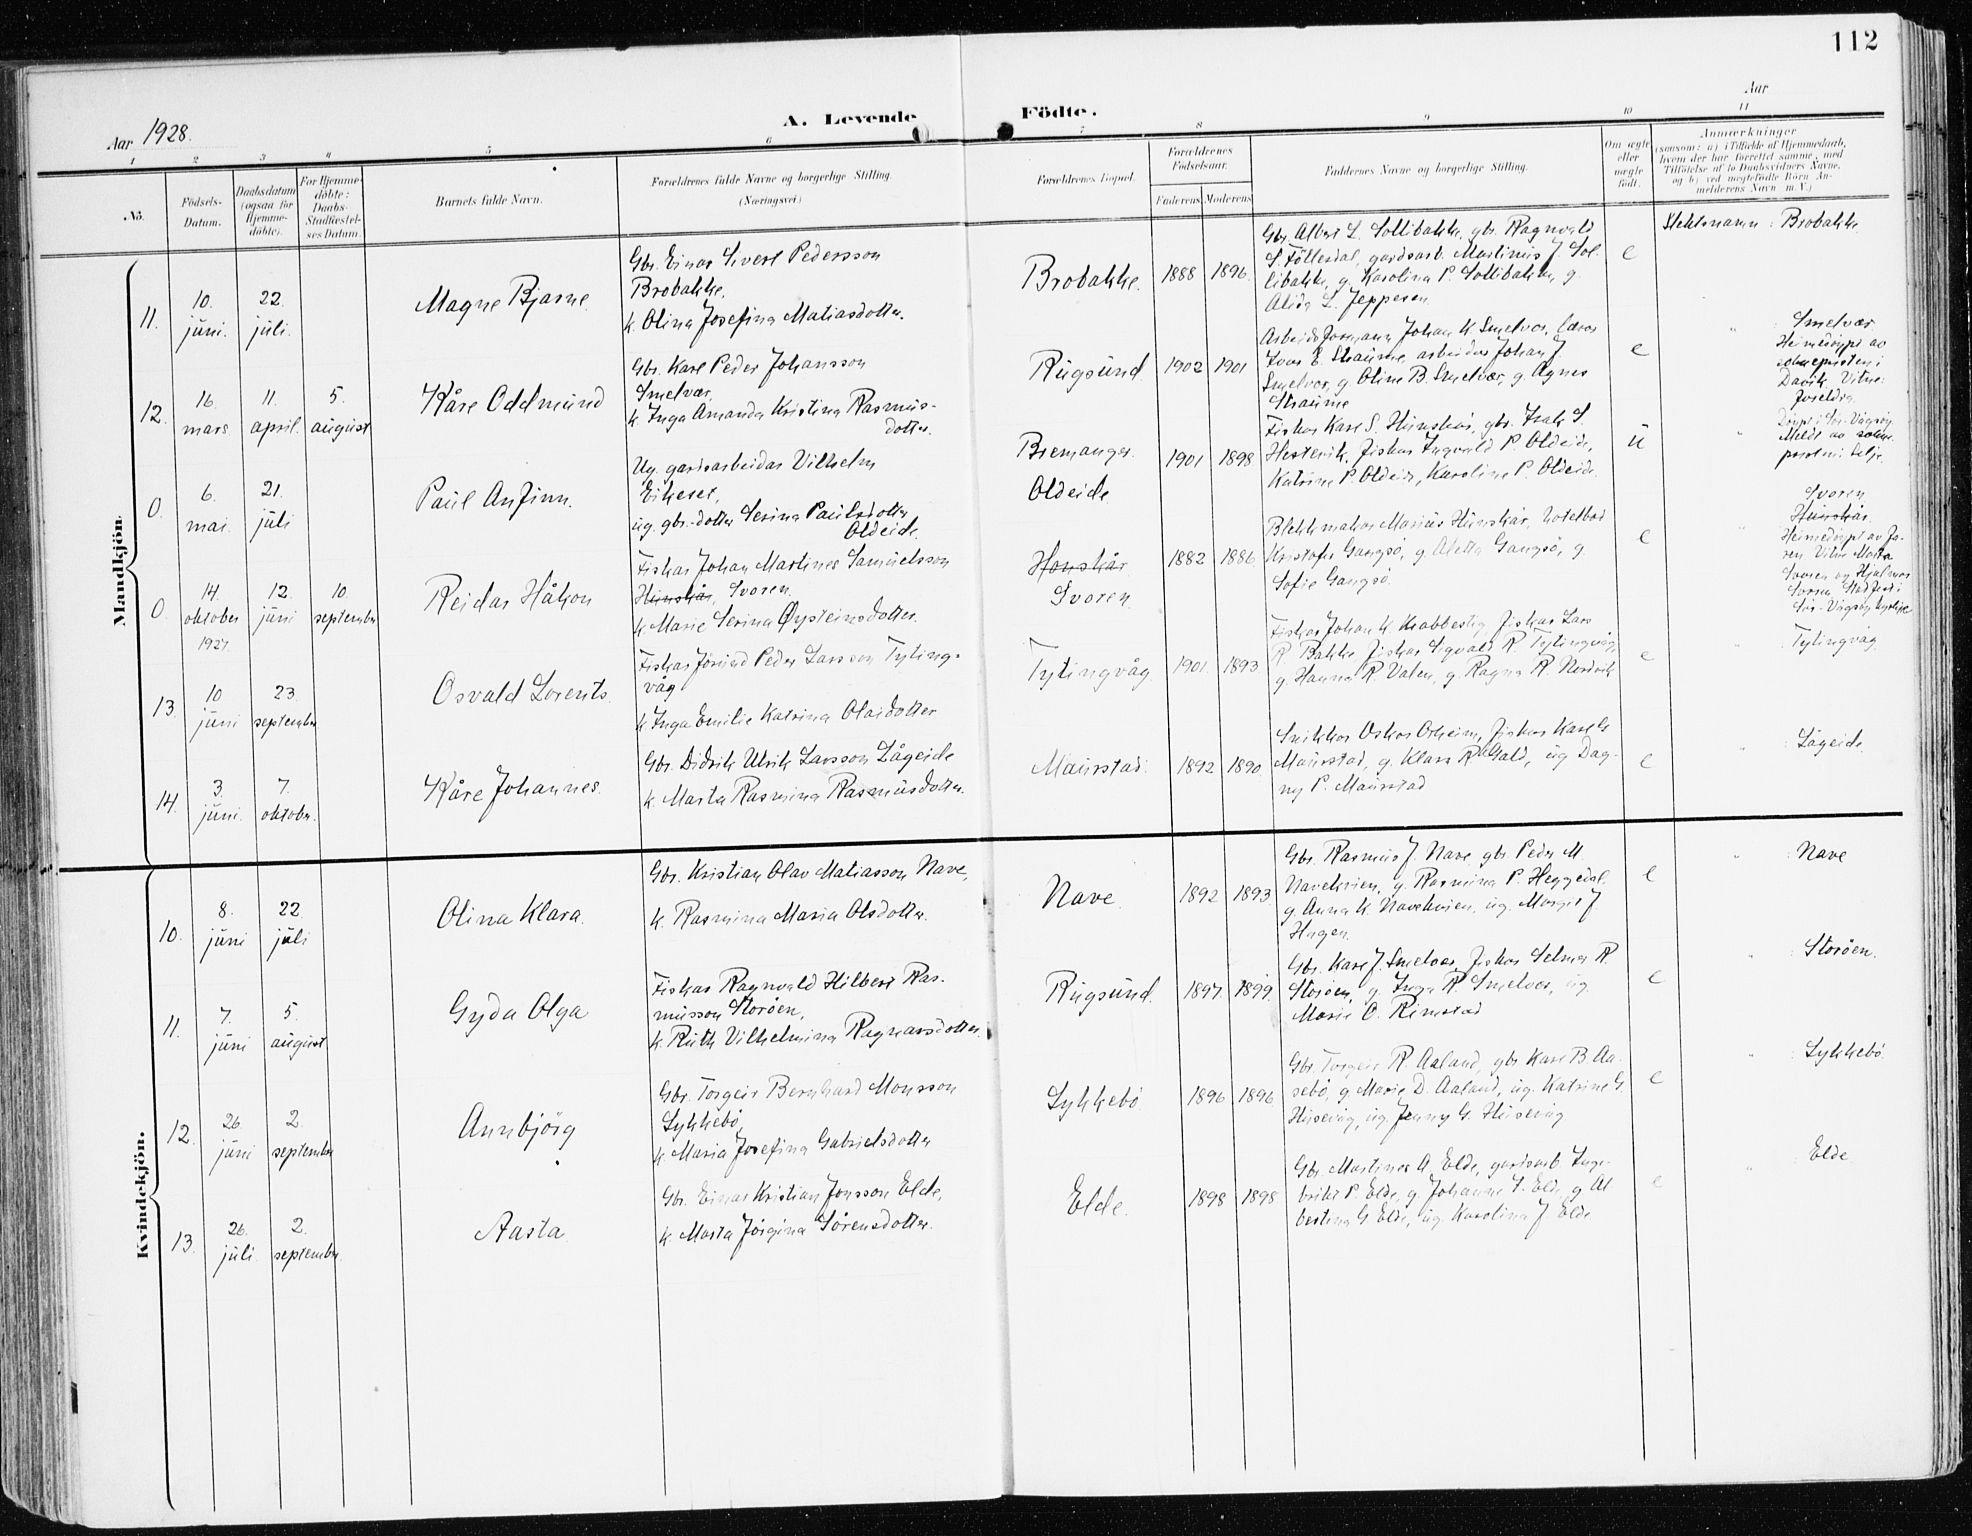 112
Aar 1928.
A. Levende Födte.
Aar
1 2 3 4 5 6 7 8 9 10 11
No.
Födsels-
Datum.
Daabsdatum
(ogsaa for
Hjemme-
döbte).
For Hjemme-
döbte:
Daabs-
Stadfæstel-
ses Datum.
Barnets fulde Navn.
Forældrenes fulde Navne og borgerlige Stilling.
(Næringsvei)
Forældrenes Bopæl.
Forældrenes
Födselsaar.
Faderens Moderens
Faddernes Navne og borgerlige Stilling.
Om ægte
eller
uægte
født.
Anmærkninger
(saasom: a) i Tilfælde af Hjemmedaab,
hvem der har forrettet samme, med
Tilføielse af to Daabsvidners Navne,
og b) ved uægtefødte Börn An-
melderens Navn m. V.)
Mandkjön.
11.
10.
juni.
22.
juli.
Magne Bjarne.
Gbr. Einar Sivert Pedersson
Brobakke,
k. Olina Josefina Matiasdotter.
Brobakke.
1888 1896.
Gbr. Albert L. Sollibakke, gbr. Ragnvald
S. Föllesdal, gardsarb. Martinus J. Sol-
libakke, g. Karolina P. Sollibakke, g.
Alida L. Jeppesen
e
Slektsnamn: Brobakke
12.
16.
mars.
11.
april.
5.
august
Kåre Oddmund
Gbr. Karl Peder Johansson
Smelvær,
k. Inga Amanda Kristina Rasmus-
dotter.
Rugsund.
1902 1901
Arbeidsformann Johan K. Smelvær, lærar
Ivar E. Straume, arbeidar Johan J.
Smelvær, g. Oline B. Smelvær, g. Agnes
Straume
e
" : Smelvær.
Heimedøypt av
soknepresten i
Davik. Vitne:
foreldra.
0.
6.
mai.
21.
juli
Paul Anfinn.
Ug. gardsarbeidar Vilhelm
Eikeset,
ug. gbr.-dotter Serina Paulsdotter
Oldeide.
Bremanger.
Oldeide
1901 1898
Fiskar Karl S. Hunskår, gbr. Isak S.
Hestevik, fiskar Ingvald P. Oldeide,
Katrine P. Oldeide, Karoline P. Oldeide.
u
Døypt i Sør-Vågsøy.
Meldt av sokne-
presten i Selje.
0
14.
oktober
1927.
12.
juni
10.
september
Reidar Håkon
Fiskar Johan Martines Samuelsson
Hunskår, Svoren.
k. Marie Serina Øysteinsdotter.
Hunskår
Svoren.
1882 1886.
Blekkmakar Marius Hunskår, hotelbud
Kristofer Gangsö, g. Aletta Gangsö, g.
Sofie Gangsö.
e
" Svoren
Hunskår.
Heimedøypt av Fa-
ren. Vitne Marta
Svoren og Hjalmar
Svoren. Stadfest i
Sør-Vågsøy kyrkje
13.
10
juni
23.
september
Osvald Lorents.
Fiskar Jörund Peder Larsson Tyting-
våg
k. Inga Emilie Katrina Olaidotter
Tytingvåg
1901. 1893.
Fiskar Johan K. Krabbestig, fiskar Lars
R. Bakke, fiskar Sigvald R. Tytingvåg,
g. Hanna R. Valen, g. Ragna R. Nordvik
e
" Tytingvåg
14.
3.
juni.
7.
oktober.
Kåre Johannes.
Gbr. Didrik Ulrik Larsson Lågeide
k. Marta Rasmina Rasmusdotter.
Maurstad.
1892 1890.
Snikkar Oskar Orheim, fiskar Karl G
Maurstad, g. Klara R. Gald, ug Dag-
ny P. Maurstad
e
" : Lågeide.
Kvindekjön.
10.
8.
juni
22
juli
Olina Klara.
Gbr. Kristian Olav Matiasson Nave,
k. Rasmina Maria Olsdotter.
Nave.
1892 1893.
Gbr. Rasmus J. Nave gbr. Peder M.
Navekvien, g. Rasmina P. Heggedal.
g. Anna K. Navekvien, ug. Margit J
Hagen.
e
" : Nave
11.
7.
juni
5.
august
Gyda Olga
Fiskar Ragnvald Hilbert Ras-
musson Storöen,
k. Ruth Vilhelmina Ragnarsdotter.
Rugsund.
1897. 1899.
Gbr. Karl J. Smelvær, fiskar Selmer R.
Storöen, g. Inga R Smelvær, ug.
Marie O. Rimstad
e
" : Storöen.
12.
26.
juni
2.
september
Annbjörg
Gbr. Torgeir Bernhard Monsson
Lykkebö,
k. Maria Josefina Gabrielsdotter
Lykkebö
1896 1896.
Gbr. Torgeir R Aaland, gbr Karl B Aa-
sebö, g. Marie D. Aaland, ug. Katrine G
Husevåg, ug. Jenny G. Husevåg
e
" : Lykkebö.
13.
26.
juli.
2.
september.
Aasta
Gbr. Einar Kristian Jonsson Elde,
k. Marta Jörgina Sörensdotter.
Elde.
1898 1898
Gbr. Martines A. Elde, gardsarb. Inge-
brikt P. Elde, g. Johanne S. Elde, g. Al-
bertina G Elde, ug. Karolina J. Elde
e
" : Elde